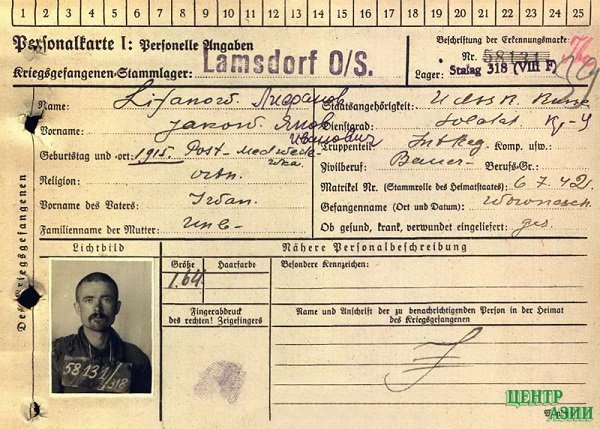 1 2 3 4 5 6 7 8 9 10 11 12 13 14 15 16 17 18 19 20 21 22 23 24 25
Personalkarte I: Personelle Angaben
Kriegsgefangenen-Stammlager: Lamsdorf O/S.
Beschriftung der Erkennungsmarke:
Nr. 58131
Lager: Stalag 318 (VIII F)
Des Kriegsgefangenen
Name: Lifanow. Лифанов
Vorname: Jakow. Яков
Иванович
Geburtstag und -ort: 1915. Post-Medwede-
wka.
Religion: orth.
Vorname des Vaters: Iwan.
Familienname der Mutter: unb-
Staatsangehörigkeit: UdSSR. Russe
Dienstgrad: Soldat
Truppenteil: Inf. Reg. Komp. usw.:
Zivilberuf: Bauer- Berufs-Gr.:
Matrikel Nr. (Stammrolle des Heimatstaates): 6.7.42.
Gefangennahme (Ort und Datum): Woronesch.
Ob gesund, krank, verwundet eingeliefert: ges.
Lichtbild
58131/318
Nähere Personalbeschreibung
Größe Haarfarbe
1.64
Besondere Kennzeichen:
Fingerabdruck
des rechten! Zeigefingers
Name und Anschrift der zu benachrichtigenden Person in der Heimat
des Kriegsgefangenen
ЦЕНТР
АЗИИ